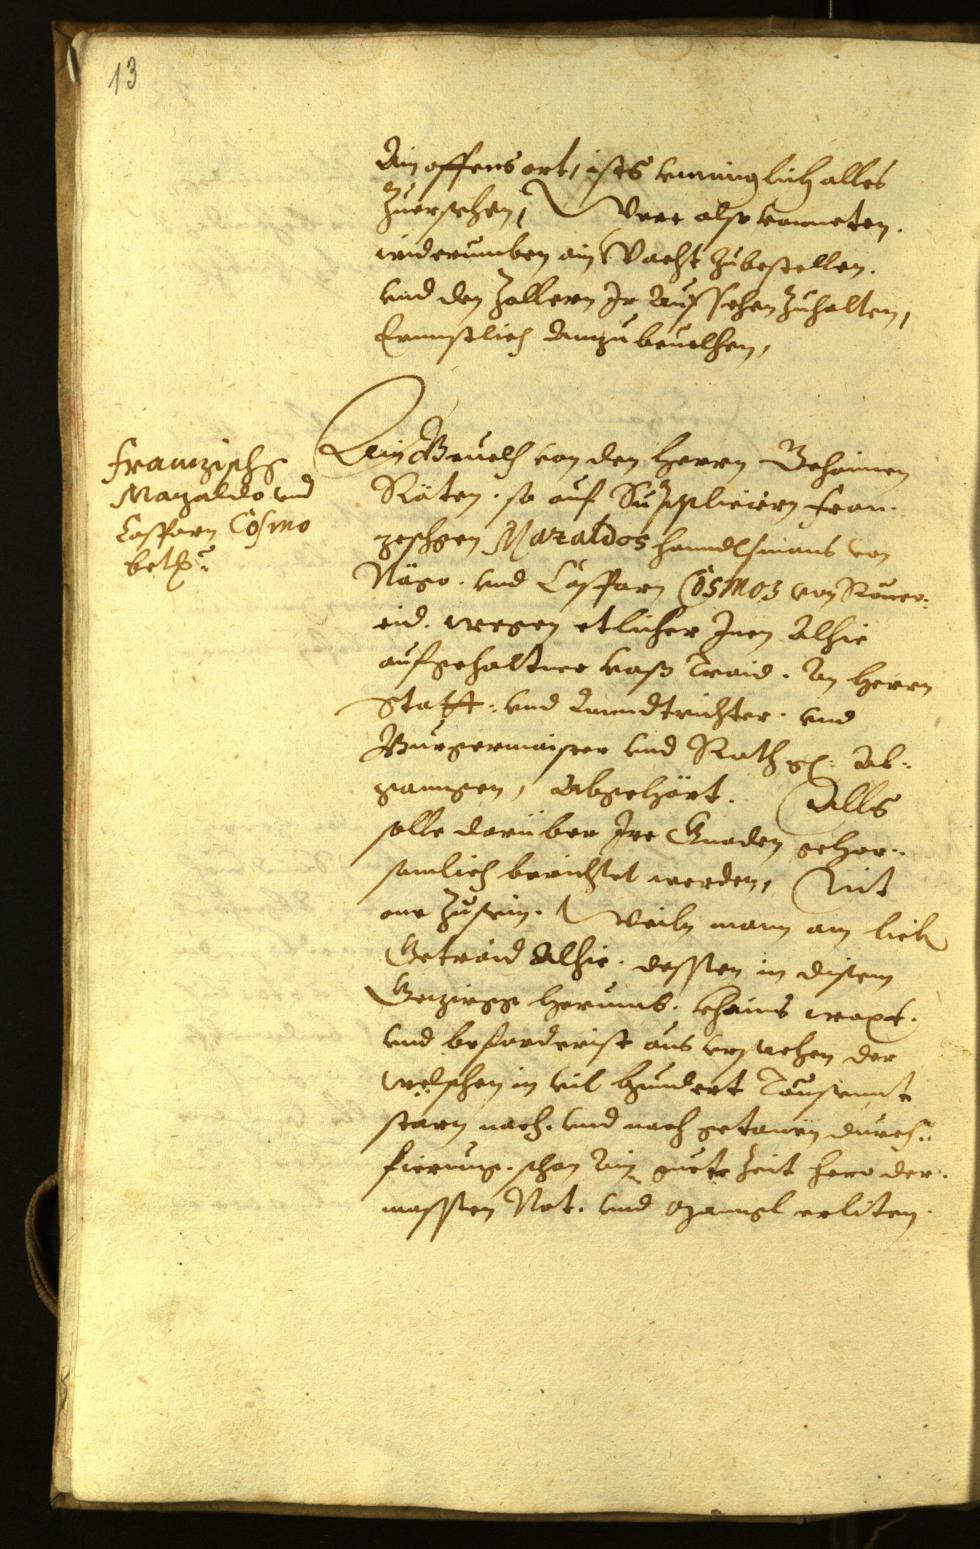 13
Ain offens ort, ists menniglich alles
Zuersehen, Vnnd also vonneten.
widerumben ain Wacht Zubestellen.
vnd den Zallern Ir Aufsehen Zuhalten,
Ernnstlich Anzubeuelhen,
Franzisch
Mazaldo vnd
Casparn Cosmo
betr:
Ain Beuelh von den Herrn Gehaimen
Räten. so auf Suppliciern Fran-
zeschgen Mazaldos Hanndlsmans von
Nägo. vnd Casparn Cosmoz von Rouer-
eid. wegen etlicher Inen Alhie
aufgehaltner Traid. An Herrn
Statt- vnd Lanndtrichter. vnd
Burgermaister vnd Rath Ab-
ganngen, Abgehört. Alls
solle darüber Ire Gnaden gehor-
samlich berichtet werden, Mit
one Zusein. Weiln mann am lieb
Getraid Alhie. dessen in disem
Gezirgg herumb. khains waxt.
vnd beforderist aus der
welschen in vil hundert Tausennt
starn nach. vnd nach getanen durch-
fierung. schon Ain guete Zeit hero der-
massen Not. vnd Manngl erliten.